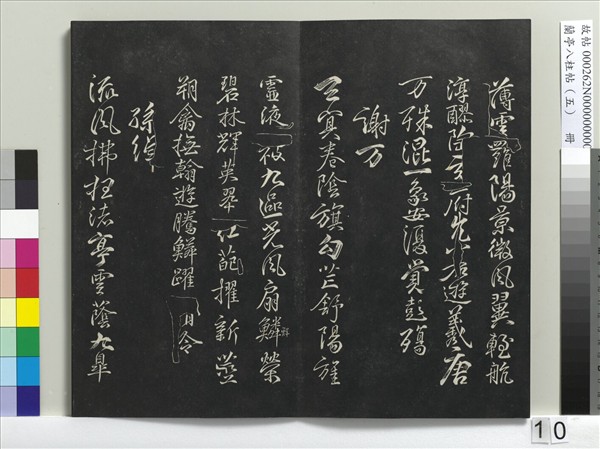 故帖 000262N000000000
蘭亭八柱帖（五） 冊
薄雲羅陽景微風翼輕航
淳醪陶玄府兀若遊羲唐
万殊混一象安復覺彭殤
謝万
玄冥卷陰旗勾芒舒陽旌
靈液被九區光風扇鱗鮮榮
碧林輝英翠紅葩擢新莖
翔禽撫翰遊騰鱗躍清泠
孫綽
流風拂枉渚亭雲蔭九皐
10